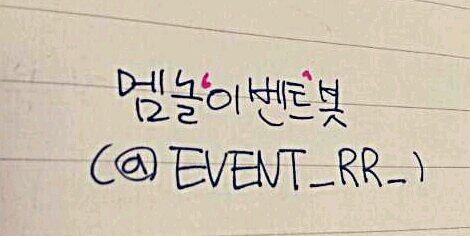 멤놀'이벤트'봇
(@EVENT_RR_)